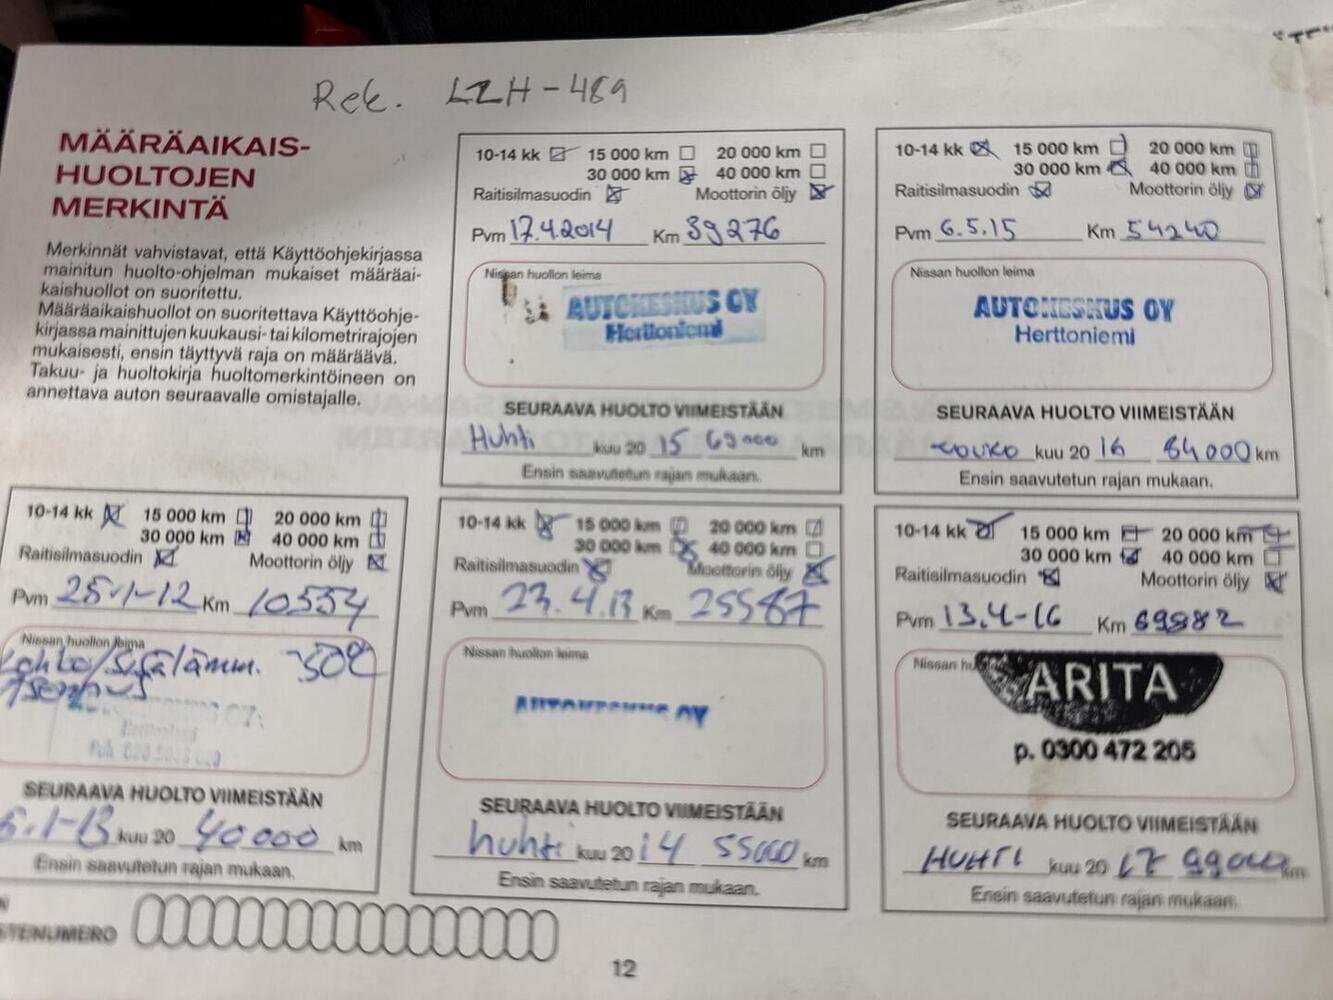 Rek. LZH-489
MÄÄRÄAIKAIS-
HUOLTOJEN
MERKINTÄ
Merkinnät vahvistavat, että Käyttöohjekirjassa
mainitun huolto-ohjelman mukaiset määräai-
kaishuollot on suoritettu.
Määräaikaishuollot on suoritettava Käyttöohje-
kirjassa mainittujen kuukausi- tai kilometrirajojen
mukaisesti, ensin täyttyvä raja on määräävä.
Takuu- ja huoltokirja huoltomerkintöineen on
annettava auton seuraavalle omistajalle.
10-14 kk 15 000 km 20 000 km
30 000 km 40 000 km
Raitisilmasuodin Moottorin öljy
Pvm 17.4.2014 Km 39276
Nissan huollon leima
AUTOKESKUS OY
Herttoniemi
SEURAAVA HUOLTO VIIMEISTÄÄN
Huhti kuu 20 15 69000 km
Ensin saavutetun rajan mukaan.
10-14 kk 15 000 km 20 000 km
30 000 km 40 000 km
Raitisilmasuodin Moottorin öljy
Pvm 6.5.15 Km 54240
Nissan huollon leima
AUTOKESKUS OY
Herttoniemi
SEURAAVA HUOLTO VIIMEISTÄÄN
touko kuu 20 16 84000 km
Ensin saavutetun rajan mukaan.
10-14 kk 15 000 km 20 000 km
30 000 km 40 000 km
Raitisilmasuodin Moottorin öljy
Pvm 25.1-12 Km 10554
Nissan huollon leima
SEURAAVA HUOLTO VIIMEISTÄÄN
1-13 kuu 20 40000 km
Ensin saavutetun rajan mukaan.
10-14 kk 15 000 km 20 000 km
30 000 km 40 000 km
Raitisilmasuodin Moottorin öljy
Pvm 23.4.13 Km 25587
Nissan huollon leima
AUTOKESKUS OY
SEURAAVA HUOLTO VIIMEISTÄÄN
huhti kuu 20 14 55000 km
Ensin saavutetun rajan mukaan.
10-14 kk 15 000 km 20 000 km
30 000 km 40 000 km
Raitisilmasuodin Moottorin öljy
Pvm 13.4-16 Km 69882
Nissan
ARITA
p. 0300 472 205
SEURAAVA HUOLTO VIIMEISTÄÄN
HUHTI kuu 20 17 99000 km
Ensin saavutetun rajan mukaan.
12